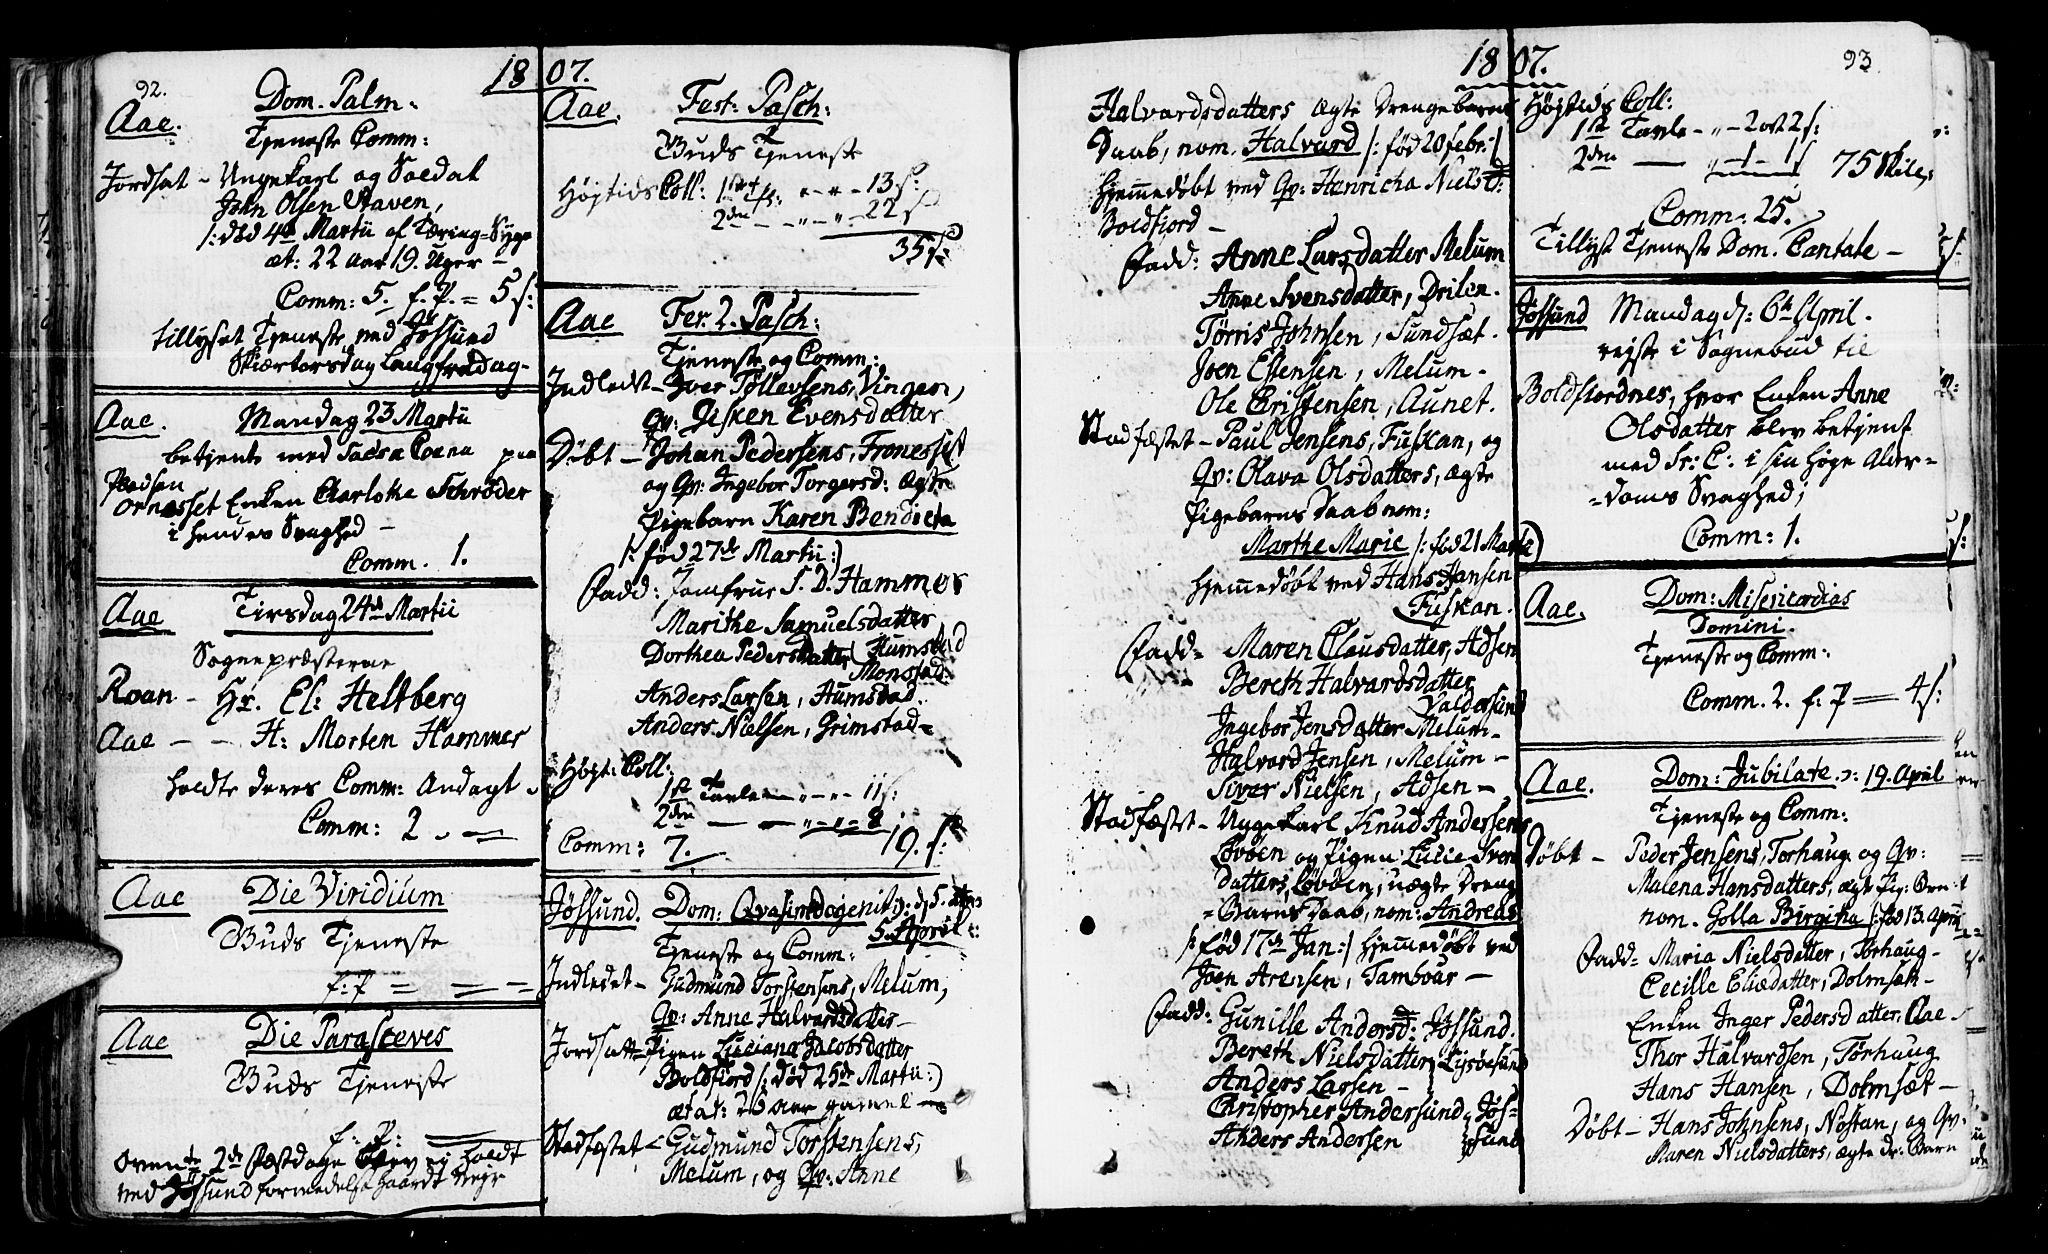 92.
1807.
Aae. Dom. Palm:
Tjeneste Comm:
Jordsat - Ungekarl og Soldat
John Olsen Staven,
/: død 4de Martii af Tæring=Syge
æt: 22 Aar 19. Uger -
Comm: 5. f. P. = 5 s:
Tillyset Tjeneste ved Jøssund
Skiærtorsdag Langfredag -
Aae. Mandag 23 Martii
betjente med Sacra Coena paa
Ornesset Enken Charlotha Schrøder
i hendes Svaghed -
Comm. 1.
Aae Tirsdag 24de Martii
Sognepræsterne
Roan - Hr. El: Heltberg
Aae - - H: Morten Hammer
holdte deres Comm: Andagt.
Comm: 2
Aae Die Viridium
Buds Tjeneste
f: P = = =
Aae Die Parasceves
Buds Tjeneste
f: P: =
2de Festdage blev ej holdt
ved Jøssund formedelst haardt Vejr
Aae. Fest: Pasch:
Buds Tjeneste
Højtids Coll: 1ste 13 s:
2den 22 s
35 s:
Aae Fer. 2. Pasch:
Tjeneste og Comm:
Indledt - Iver Tollevsens, Vingen,
Qv: Gisken Evensdatter
Døbt - Johan Pedersens, Fronesset
og Qv: Ingebor Torgersd: ægte
Pigebarn Karen Bendicta
/: fød 27de Martii :/
Fadd: Jomfrue S. D. Hammer
Marithe Samuelsdatter
Dorthea Pedersdatter Humstad
Monstad.
Anders Larsen, Humstad.
Anders Nielsen, Grimstad -
Højt: Coll:
1ste Tavlen " - " - 11 s:
2den - - " - " - 8
Comm: 7. 19. s:
Jøssund. Dom: Qvasimodogenit. 5.
5. April:
Tjeneste og Comm:
Indledet - Gudmund Torstensens, Melum,
Qv: Anne Halvardsdatter -
Jordsatt - Pigen Luciana Jacobsdatter
Boldfiord /: død 25de Martii :/
ætat: 26 Aar gamel -
Stadfæstet - Gudmund Torstensens,
Melum, og Qv: Anne
1807.
93
Halvardsdatters ægte Drengebarns
Daab, nom. Halvard /: fød 20 febr: /
hjemmedøbt ved Qv: Henricha Nielsd:
Boldfiord -
Fadd: Anne Larsdatter Melum
Anne Svensdatter, Drilen.
Tørris Johnsen, Sundsæt.
Joen Estensen, Melum -
Ole Christensen, Aunet.
Stadfæstet - Paul Jensens, Fuskan, og
Qv: Olava Olsdatters, ægte
Pigebarns Daab nom:
Marthe Marie /: fød 21 Martii
hjemmedøbt ved Hans Hansen
Fuskan.
Fadd = Maren Clausdatter, Adsen
Bereth Halvardsdatter
Valdersund
Ingebor Jensdatter Melum -
Halvard Jensen, Melum -
Siver Nielsen, Adsen -
Stadfæstet - Ungekarl Knud Andersens
Løvøen og Pigen Lucie Svens
datters, Løvøen, uægte Drenge
=Barns Daab, nom: Andreas
/: fød 17de Jan: / hjemmedøbt ved
Joen Arensen, Tambour -
Fadd: Gunille Andersd: Jøssund.
Bereth Nielsdatter Lysøesund
Anders Larsen -
Christopher Andersund, Jøs=
Anders Andersen sund
Højtids Coll:
1ste Tavle - " - 2 ort 2 s:
2den - " - 1 - 1 s 75 Skil:
Comm: 25.
Tillyst Tjeneste Dom. Cantate -
Jøssund Mandag d: 6te April.
rejste i Sognebud til
Boldfiordnes, hvor Enken Anne
Olsdatter blev betjent
med Sr: C: i sin høge Alder=
=doms Svaghed;
Comm: 1.
Aae. Dom: Misericordias
Domini.
Tjeneste og Comm:
Comm. 2. f: P = 4 s:
Aae. Dom: Jubilate ɔ: 19. April
Tjeneste og Comm:
Døbt - Peder Jensens, Torhaug og Qv:
Malena Hansdatters, ægte Pig: Barn
nom. Golla Birgitha /: fød 13. April
Fadd = Maria Nielsdatter, Torhaug -
Cecille Eliædatter, Dolmsæt -
Enken Inger Pedersdatter, Aae -
Thor Halvardsen, Torhaug
Hans Hansen, Dolmsæt -
Døbt - Hans Johnsens, Nostan, og Qv:
Maren Nielsdatters, ægte Dr: Barn